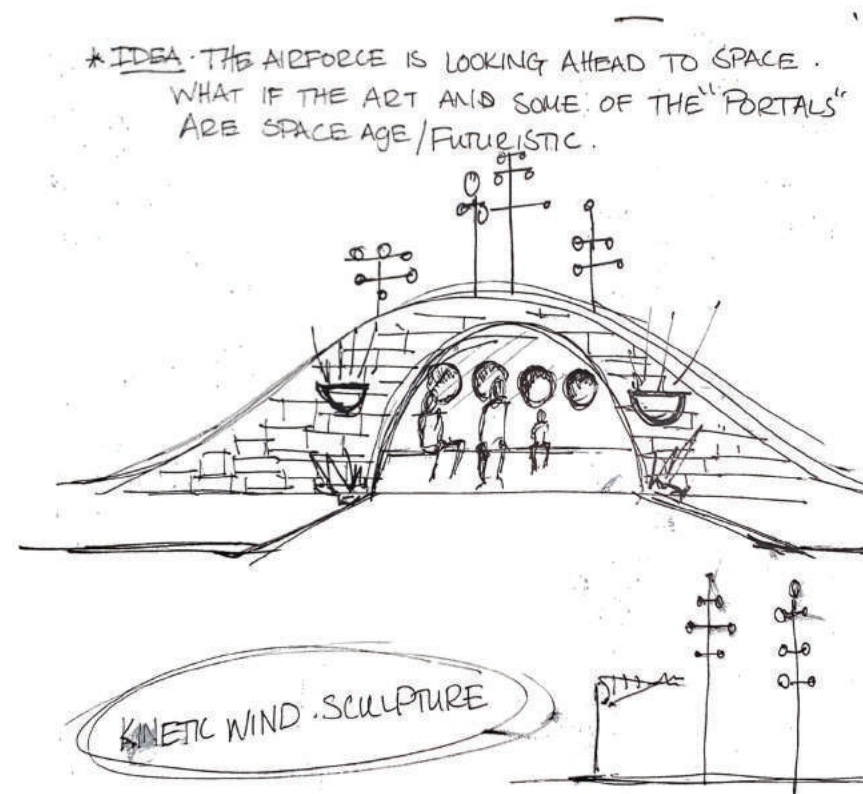 * IDEA. THE AIRFORCE IS LOOKING AHEAD TO SPACE.
WHAT IF THE ART AND SOME OF THE "PORTALS"
ARE SPACE AGE/FUTURISTIC.
KINETIC WIND.SCULPTURE